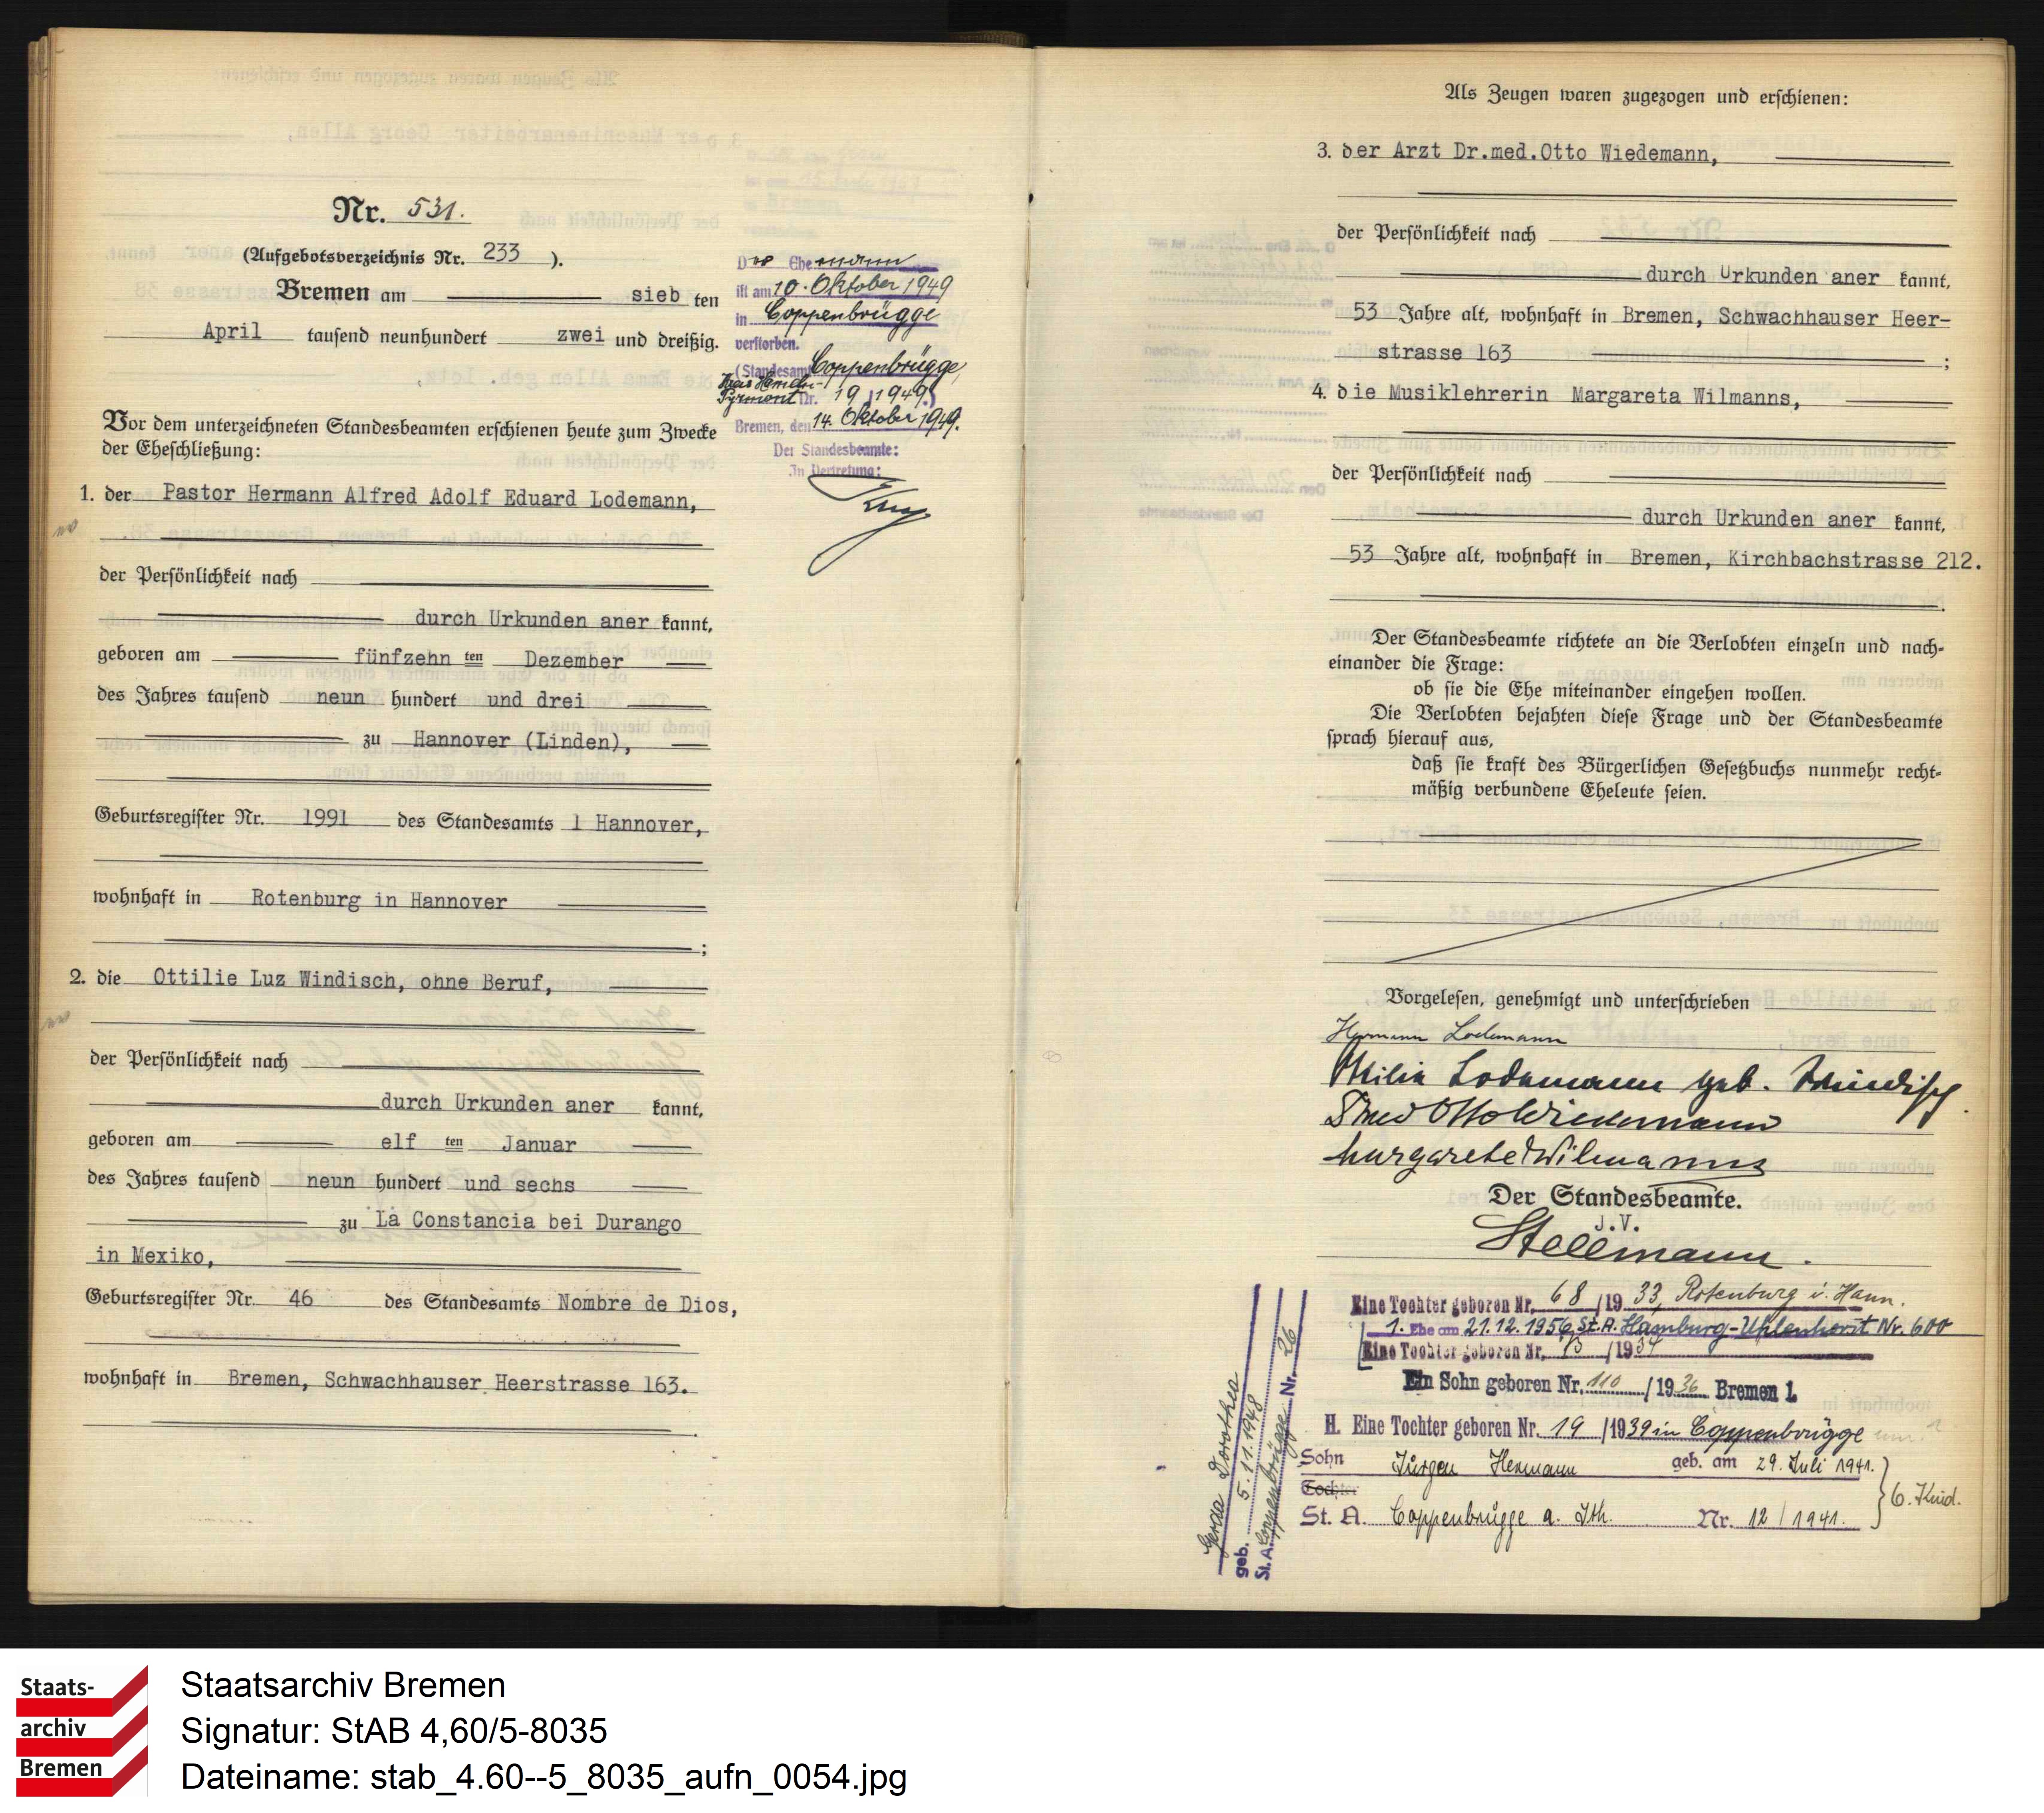 Nr. 531.
(Aufgebotsverzeichnis Nr. 233 ).
Bremen am sieb ten
April tausend neunhundert zwei und dreißig.
Vor dem unterzeichneten Standesbeamten erschienen heute zum Zwecke
der Eheschließung:
1. der Pastor Hermann Alfred Adolf Eduard Lodemann,
der Persönlichkeit nach
durch Urkunden aner kannt,
geboren am fünfzehn ten Dezember
des Jahres tausend neun hundert und drei
zu Hannover (Linden),
Geburtsregister Nr. 1991 des Standesamts 1 Hannover,
wohnhaft in Rotenburg in Hannover
;
2. die Ottilie Luz Windisch, ohne Beruf,
der Persönlichkeit nach
durch Urkunden aner kannt,
geboren am elf ten Januar
des Jahres tausend neun hundert und sechs
zu La Constancia bei Durango
in Mexiko,
Geburtsregister Nr. 46 des Standesamts Nombre de Dios,
wohnhaft in Bremen, Schwachhauser Heerstrasse 163.
Der Ehemann
ist am 10. Oktober 1949
in Coppenbrügge
verstorben.
(Standesamt Coppenbrügge,
Pyrmont Nr. 19 / 1949.)
Bremen, den 14. Oktober 1949.
Der Standesbeamte:
In Vertretung:
Als Zeugen waren zugezogen und erschienen:
3. der Arzt Dr.med.Otto Wiedemann,
der Persönlichkeit nach
durch Urkunden aner kannt,
53 Jahre alt, wohnhaft in Bremen, Schwachhauser Heer-
strasse 163 ;
4. die Musiklehrerin Margareta Wilmanns,
der Persönlichkeit nach
durch Urkunden aner kannt,
53 Jahre alt, wohnhaft in Bremen, Kirchbachstrasse 212.
Der Standesbeamte richtete an die Verlobten einzeln und nach-
einander die Frage:
ob sie die Ehe miteinander eingehen wollen.
Die Verlobten bejahten diese Frage und der Standesbeamte
sprach hierauf aus,
daß sie kraft des Bürgerlichen Gesetzbuchs nunmehr recht-
mäßig verbundene Eheleute seien.
Vorgelesen, genehmigt und unterschrieben
Hermann Lodemann
Ottilie Lodemann geb. Windisch.
Dr med Otto Wiedemann
Margarete Wilmanns
Der Standesbeamte.
J.V.
Stellmann.
Eine Tochter geboren Nr. 68 /19 33, Rotenburg i. Hann.
1. Ehe am 21.12.1956 St.A. Hamburg-Uhlenhorst Nr. 600
Eine Tochter geboren Nr. /1934
Ein Sohn geboren Nr. 110 /19 36 Bremen 1.
H. Eine Tochter geboren Nr. 19 /1939 in Coppenbrügge
Sohn Jürgen Hermann geb. am 29. Juli 1941.
Tochter
St. A. Coppenbrügge a. Ith. Nr. 12 / 1941. 6. Kind.
Gerda Dorothea
geb. 5.11.1948
St. A. Coppenbrügge Nr. 26
Staats-
archiv
Bremen
Staatsarchiv Bremen
Signatur: StAB 4,60/5-8035
Dateiname: stab_4.60--5_8035_aufn_0054.jpg